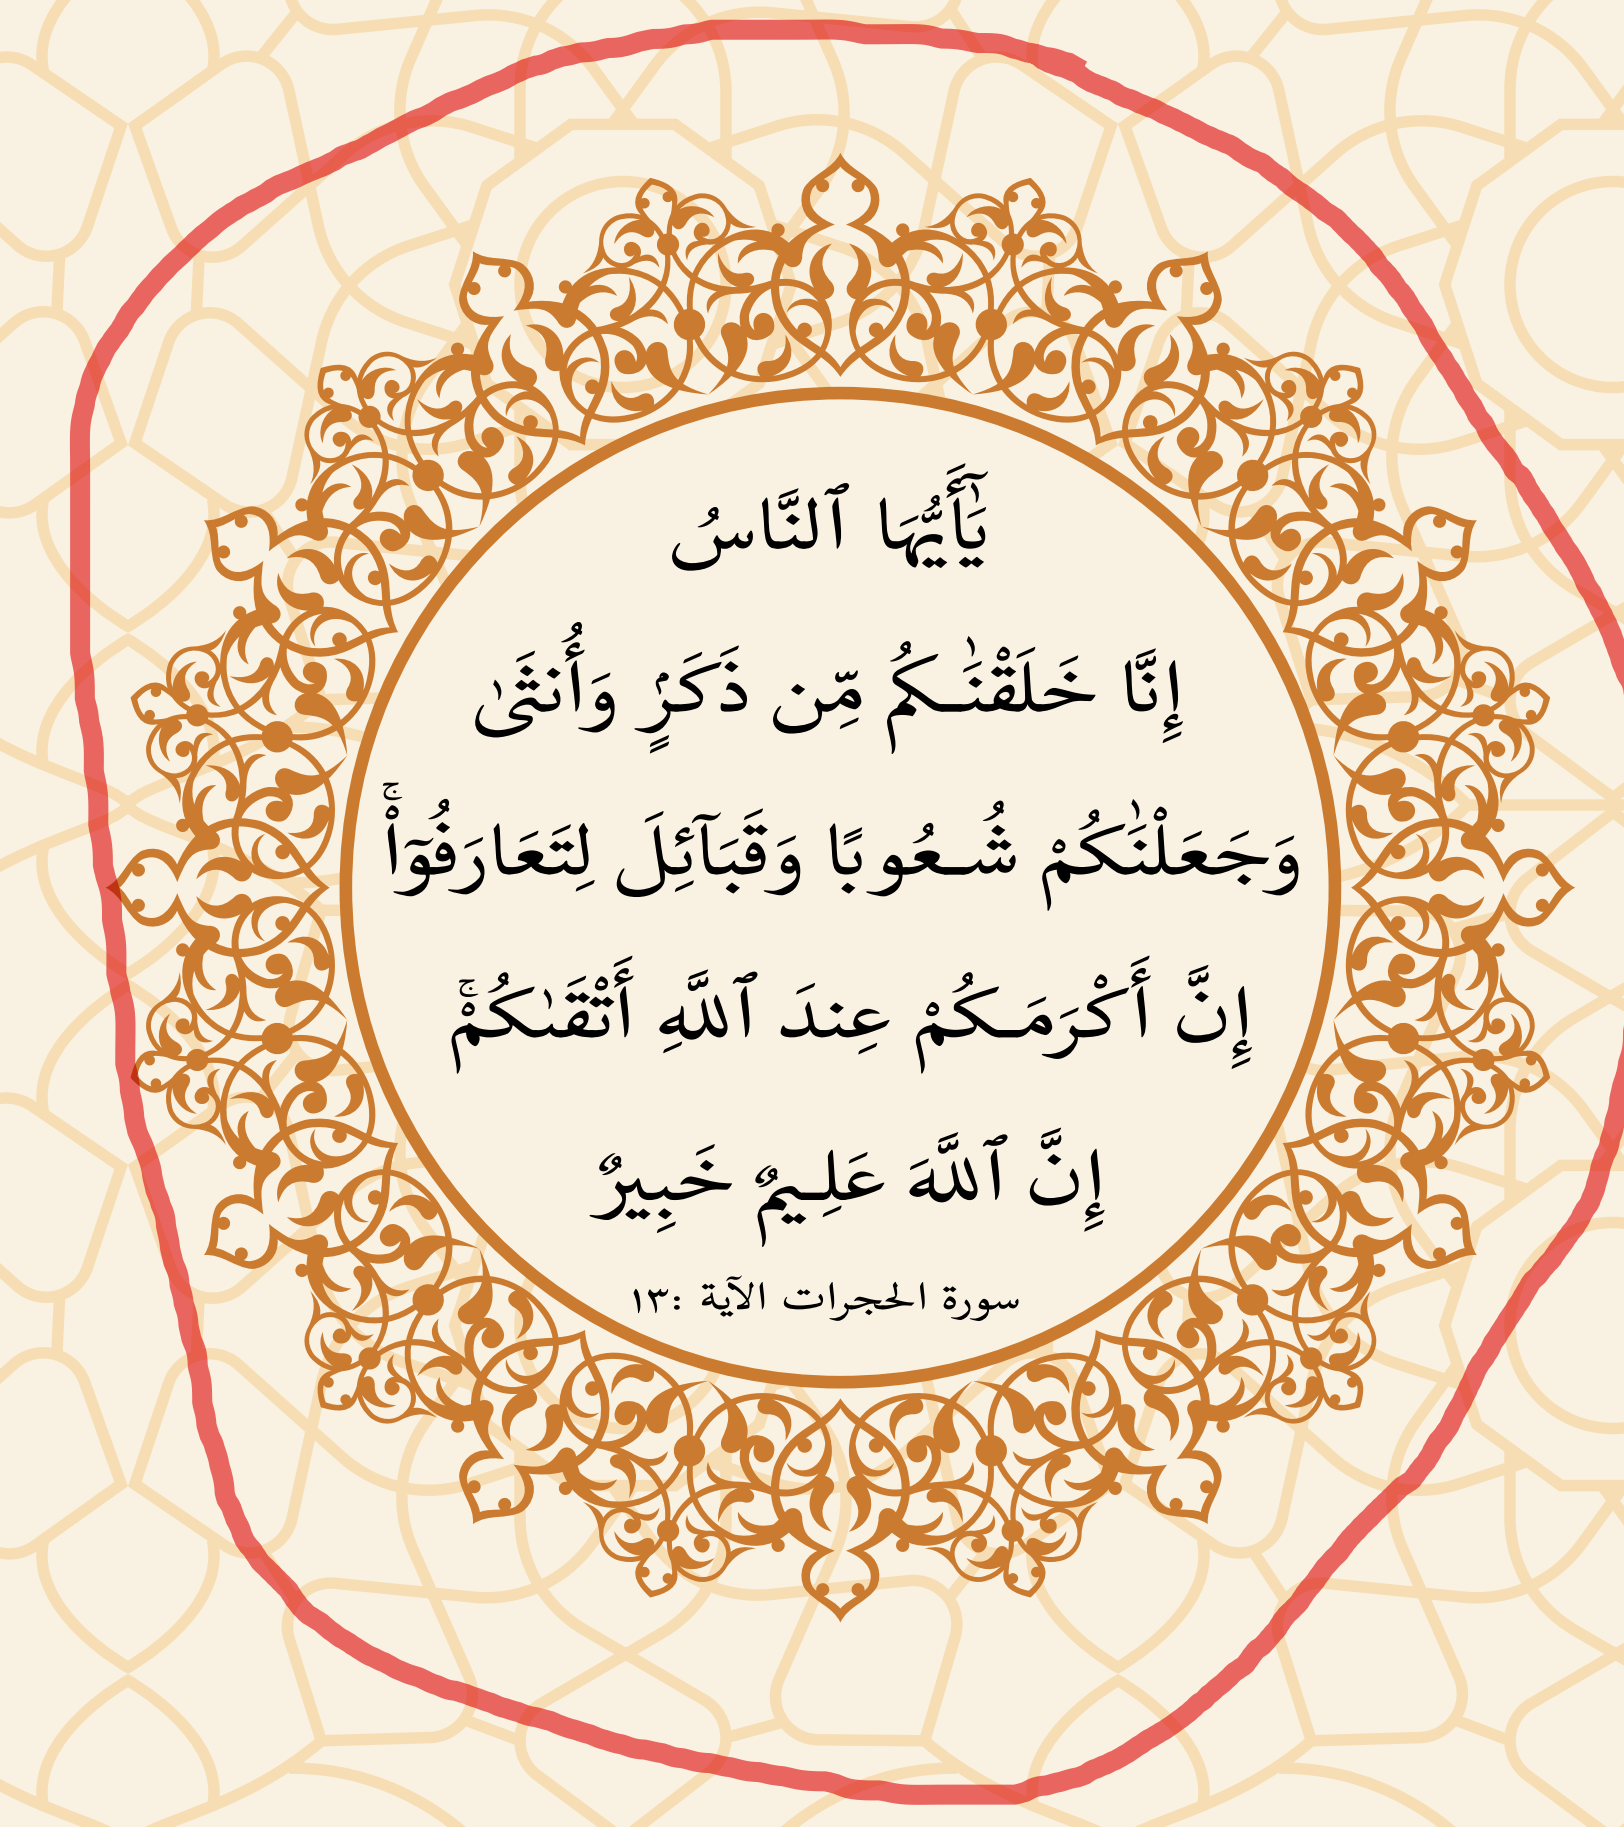 يَٰٓأَيُّهَا ٱلنَّاسُ
إِنَّا خَلَقْنَٰكُم مِّن ذَكَرٍۢ وَأُنثَىٰ
وَجَعَلْنَٰكُمْ شُعُوبًا وَقَبَآئِلَ لِتَعَارَفُوٓا۟ۚ
إِنَّ أَكْرَمَكُمْ عِندَ ٱللَّهِ أَتْقَىٰكُمْۚ
إِنَّ ٱللَّهَ عَلِيمٌ خَبِيرٌ
سورة الحجرات الآية :١٣